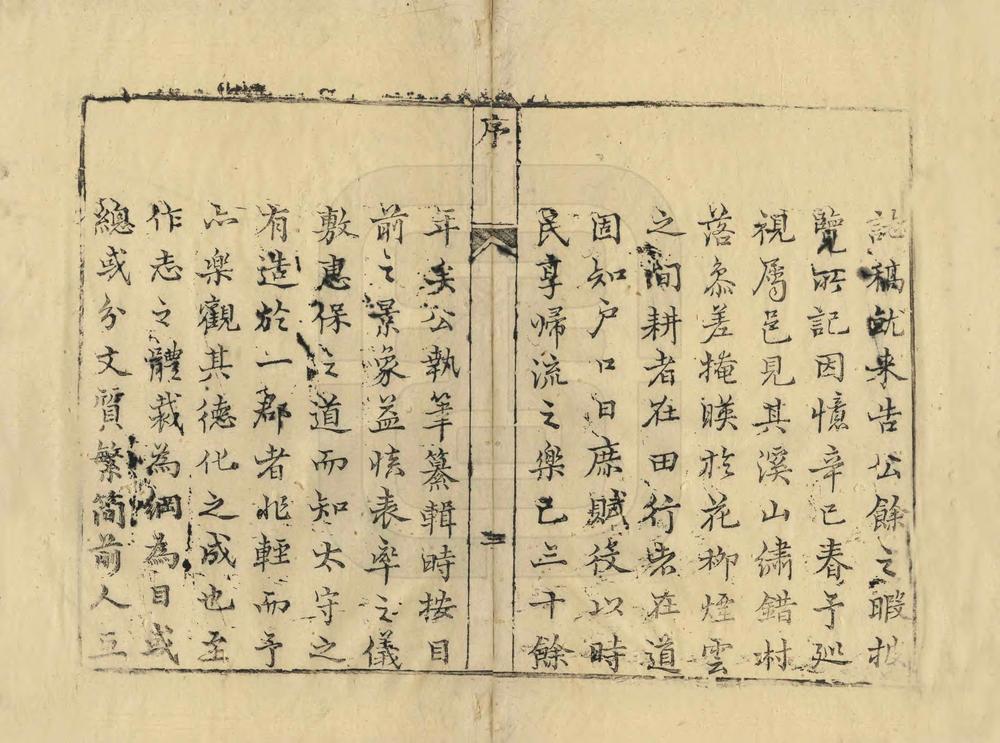 誌稿就来告公餘之暇披
覽所記因憶辛巳春予巡
視属邑見其溪山繡錯村
落叅差掩暎於花柳煙雲
之間耕者在田行者在道
固知户口日庶賦役以時
民享帰流之樂已三十餘
序
三
年矣公執筆纂輯時按目
前之景象益悋表率之儀
敷惠保之道而知太守之
有造於一郡者非輕而予
亦樂觀其德化之成也至
作志之體裁為綱為目或
總或分文質繁簡前人互